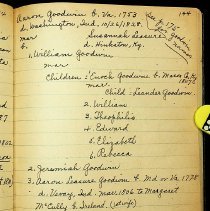 144
Aaron Goodwin b. Va. 1753
d. Washington, Ind. 10/26/1828.
mar. Susannah Leasure
b. d. Hinkston, Ky.
1. William Goodwin
mar.
Children: Enoch Goodwin b. Mason Co, Ky
Child: Leander Goodwin
2. William
3. Theophilis
4. Edward
5. Elizabeth
6. Rebecca
2. Jeremiah Goodwin
3. Aaron Leasure Goodwin b. Md or Va 1778
d. Vevay, Ind. mar. 1806 to Margaret
McCully b. Ireland.